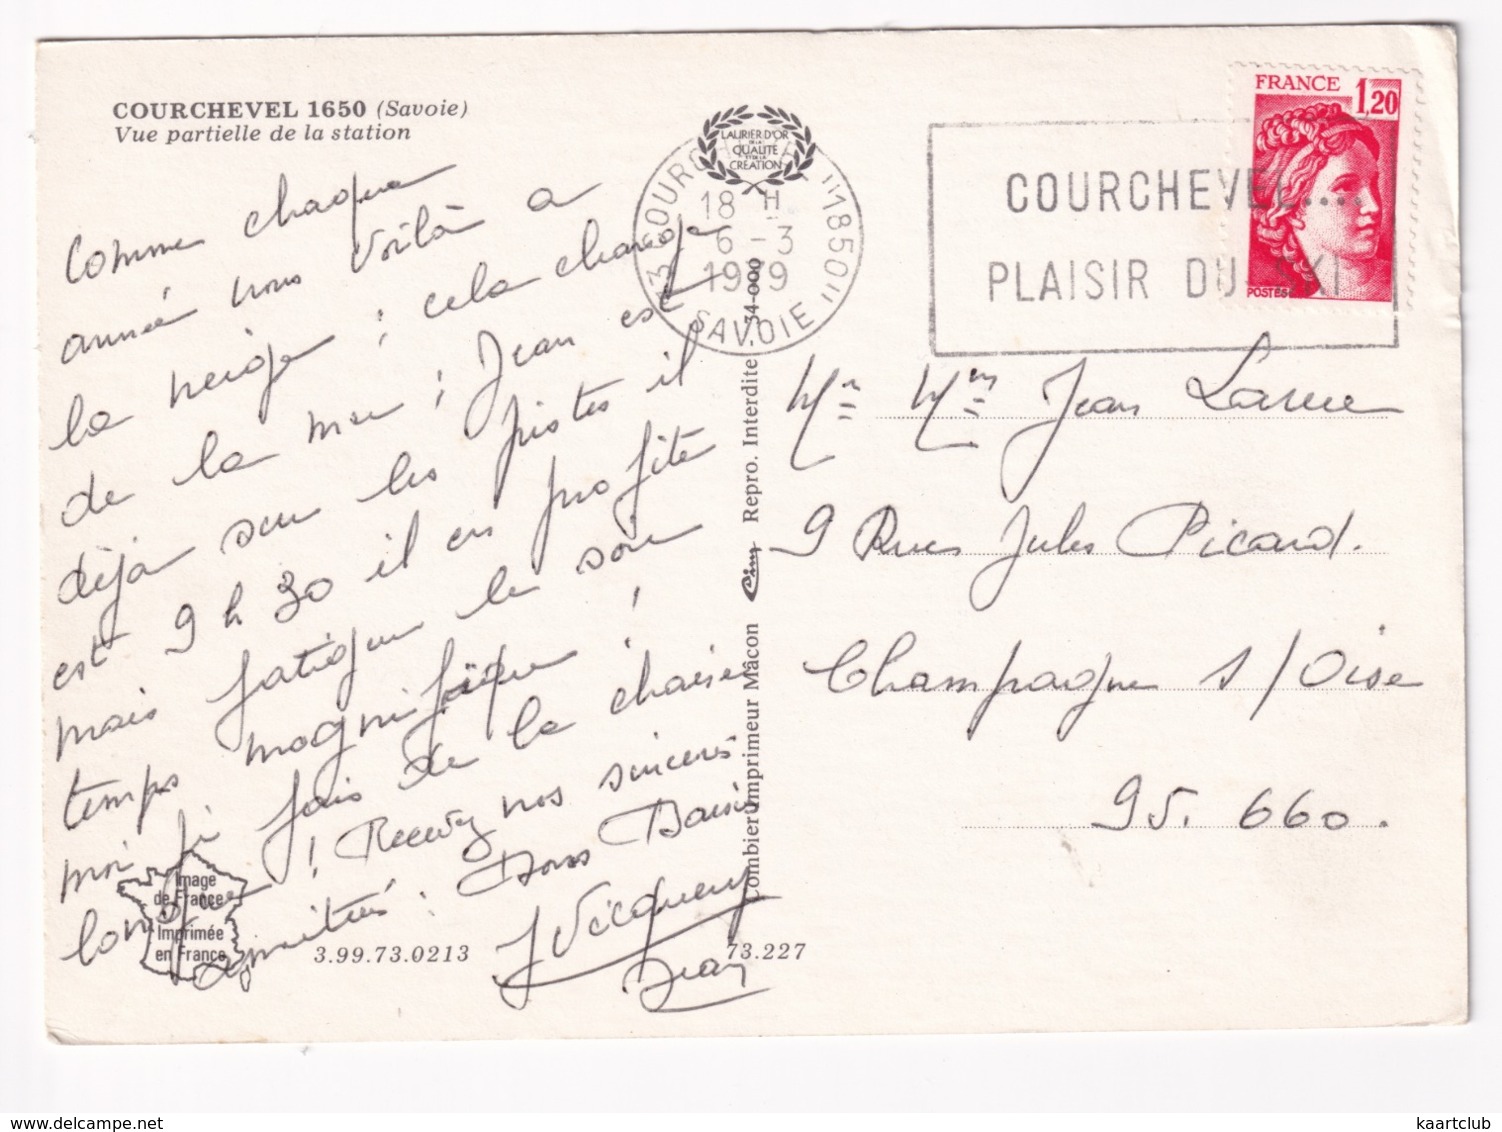 COURCHEVEL 1650 (Savoie)
Vue partielle de la station
Comme chaque
année nous voilà a
la neige ; cela change
de la mer ; Jean est
déjà sur les pistes il
est 9 h 30 il en profite
mais fatigue le soir
temps magnifique !
moi je fais de la chaise
longue ! Recevez nos sincères
amitiés. Bons Baisers
J Vicquery
Jean
Image
de France
Imprimée
en France
3.99.73.0213
73.227
Combier Imprimeur Mâcon Cim Repro. Interdite 34-000
LAURIER D'OR
DE LA
QUALITE
ET DE LA
CREATION
73 COURCHEVEL "1850"
18 H
6 - 3
1979
SAVOIE
COURCHEVEL....
PLAISIR DU SKI
FRANCE 1,20
POSTES
Mr Mme Jean Larue
9 Rue Jules Picard.
Champagne s/Oise
95. 660.
kaartclub